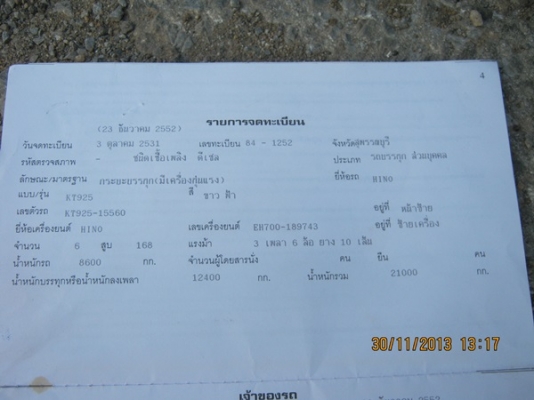 4
รายการจดทะเบียน
(23 ธันวาคม 2552)
วันจดทะเบียน 3 ตุลาคม 2531 เลขทะเบียน 84 - 1252 จังหวัดสุพรรณบุรี
รหัสตรวจสภาพ - ชนิดเชื้อเพลิง ดีเซล ประเภท รถบรรทุก ส่วนบุคคล
ลักษณะ/มาตรฐาน กระบะบรรทุก(มีเครื่องทุ่นแรง) ยี่ห้อรถ HINO
แบบ/รุ่น KT925 สี ขาว ฟ้า
เลขตัวรถ KT925-15560 อยู่ที่ หน้าซ้าย
ยี่ห้อเครื่องยนต์ HINO เลขเครื่องยนต์ EH700-189743 อยู่ที่ ซ้ายเครื่อง
จำนวน 6 สูบ 168 แรงม้า 3 เพลา 6 ล้อ ยาง 10 เส้น
น้ำหนักรถ 8600 กก. จำนวนผู้โดยสารนั่ง คน ยืน คน
น้ำหนักบรรทุกหรือน้ำหนักลงเพลา 12400 กก. น้ำหนักรวม 21000 กก.
30/11/2013 13:17
เจ้าของรถ